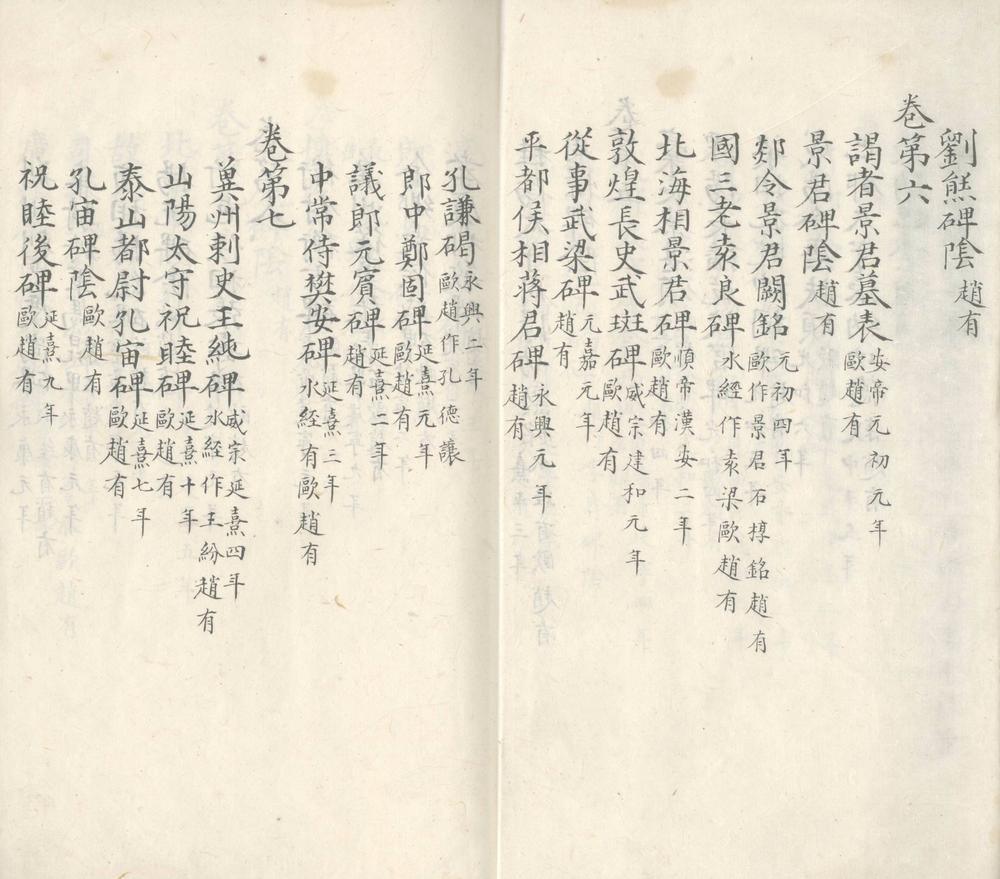 劉熊碑陰趙有
卷第六
謁者景君墓表安帝元初元年歐趙有
景君碑陰趙有
郯令景君闕銘元初四年歐作景君石椁銘趙有
國三老袁良碑水經作袁梁歐趙有
北海相景君碑順帝漢安二年歐趙有
敦煌長史武斑碑威宗建和元年歐趙有
從事武梁碑元嘉元年趙有
平都侯相蔣君碑永興元年趙有
孔謙碣永興二年歐趙作孔德讓
郎中鄭固碑延熹元年歐趙有
議郎元賓碑延熹二年趙有
中常侍樊安碑延熹三年水經有歐趙有
卷第七
兾州刺史王純碑威宗延熹四年水經作王紛趙有
山陽太守祝睦碑延熹十年歐趙有
泰山都尉孔宙碑延熹七年歐趙有
孔宙碑陰歐趙有
祝睦後碑延熹九年歐趙有